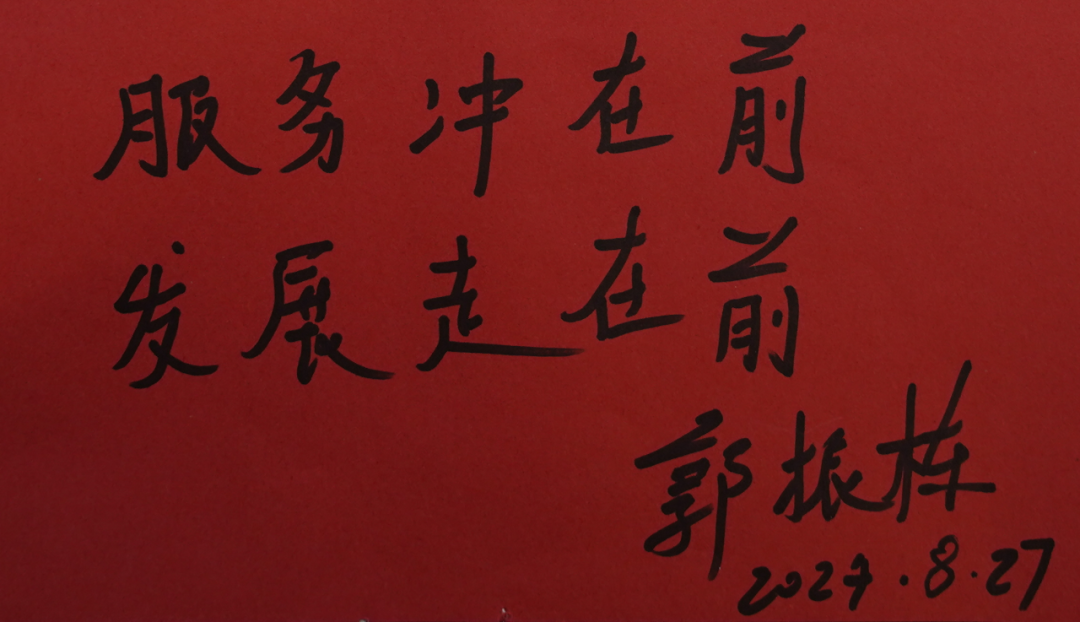 服务冲在前
发展走在前
郭振栋
2024.8.27